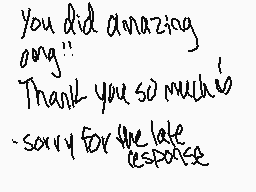 you did amazing
omg!!
Thank you so much
-sorry for the late
response